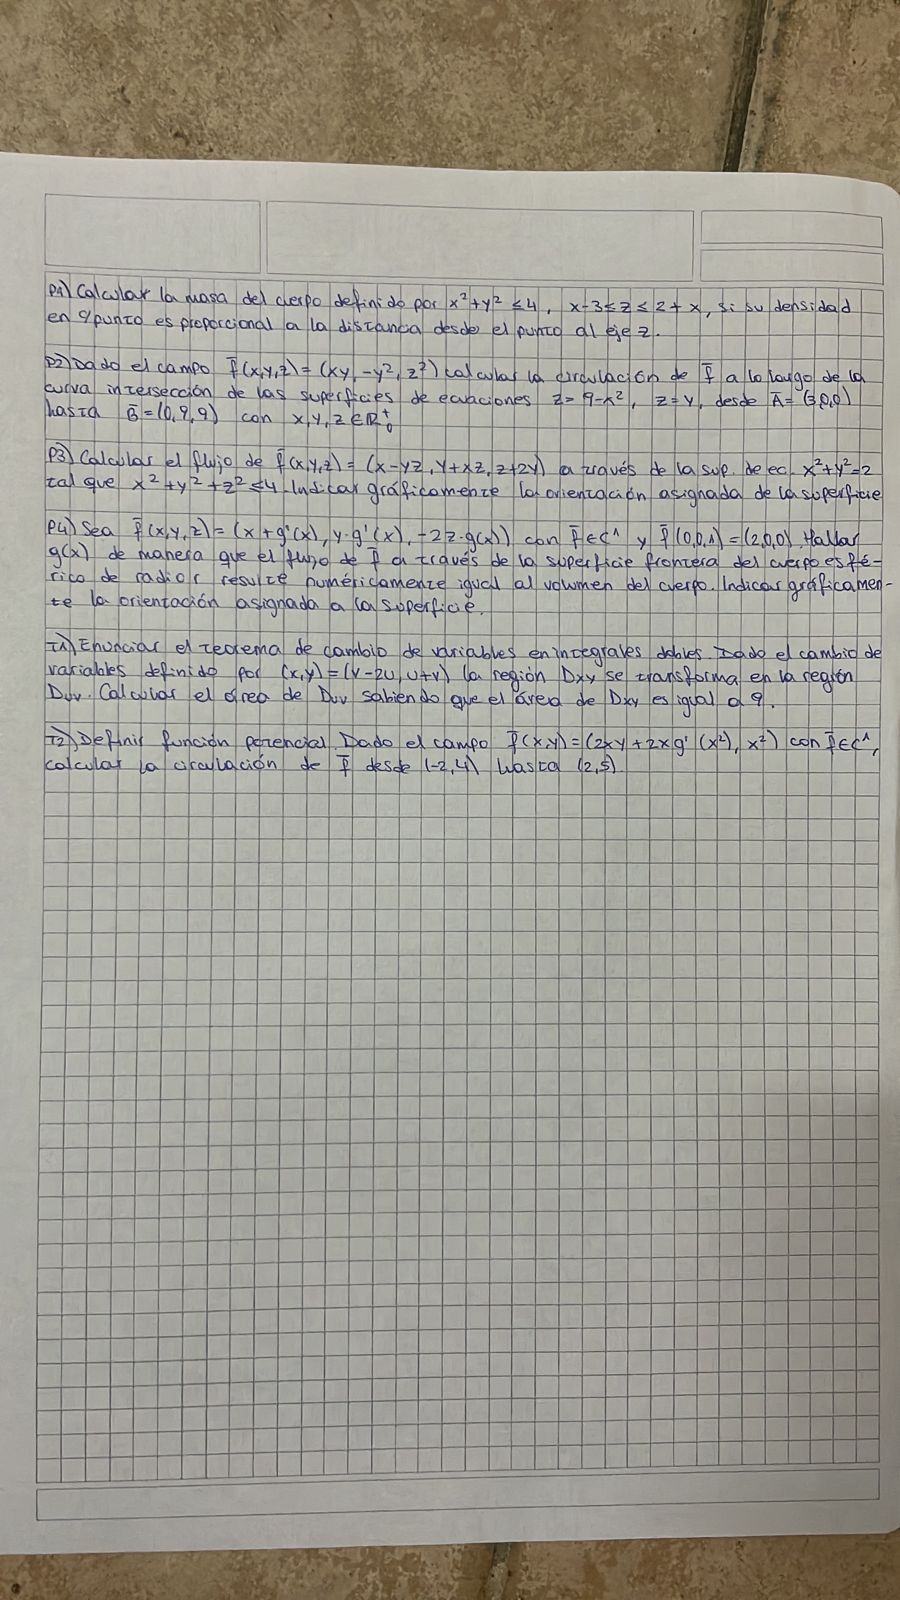 P1) Calcular la masa del cuerpo definido por x²+y² ≤4, x-3≤z≤2+x, si su densidad
en c/punto es proporcional a la distancia desde el punto al eje z.
P2) Dado el campo f̄(x,y,z)=(xy,-y²,z²) calcular la circulación de f̄ a lo largo de la
curva intersección de las superficies de ecuaciones z=9-x², z=y, desde Ā=(3,0,0)
hasta B̄=(0,9,9) con x,y,z∈ℝ₀⁺
P3) Calcular el flujo de f̄(x,y,z)=(x-yz,y+xz,z+2y) a través de la sup. de ec. x²+y²=2
tal que x²+y²+z²≤4. Indicar gráficamente la orientación asignada de la superficie
P4) Sea f̄(x,y,z)=(x+g'(x),y.g'(x),-2z.g(x)) con f̄∈C¹ y f̄(0,0,1)=(2,0,0). Hallar
g(x) de manera que el flujo de f̄ a través de la superficie frontera del cuerpo esfé-
rico de radio r resulte numéricamente igual al volumen del cuerpo. Indicar gráficamen-
te la orientación asignada a la superficie.
T1) Enunciar el teorema de cambio de variables en integrales dobles. Dado el cambio de
variables definido por (x,y)=(v-2u,u+v) la región Dxy se transforma en la región
Duv. Calcular el área de Duv sabiendo que el área de Dxy es igual a 9.
T2) Definir función potencial. Dado el campo f̄(x,y)=(2xy+2xg'(x²),x²) con f̄∈C¹,
calcular la circulación de f̄ desde (-2,4) hasta (2,5).